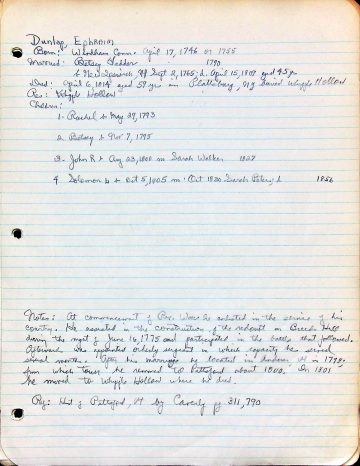 Dunlap, Ephraim
Born: Windham Conn. April 17, 1746 or 1755
Married: Betsey 1790
b New Ipswich, NH Sept 2, 1765; d. April 15, 1809 aged 45 yrs
Died: April 6, 1814 aged 59 yrs in Plattsburg, NY buried Whipple Hollow
Res: Whipple Hollow
Children:
1. Rachel b May 29, 1793
2. Betsey b Nov 7, 1795
3. John R b Aug 23, 1800 m Sarah Walker 1827
4. Solomon b Oct 5, 1805 m. Oct 1830 Sarah d 1856
Notes: At commencement of Rev. War he enlisted in the service of his
country. He assisted in the construction of the redoubt on Breeds Hill
during the night of June 16, 1775 and participated in the battle that followed.
Afterward was appointed orderly sergeant in which capacity he served
several months. Upon his marriage he located in Andover, Vt in 1790,
from which town he removed to Pittsford about 1800. In 1801
he moved to Whipple Hollow where he died.
Ref: Hist of Pittsford, Vt by Caverly pg 311, 790